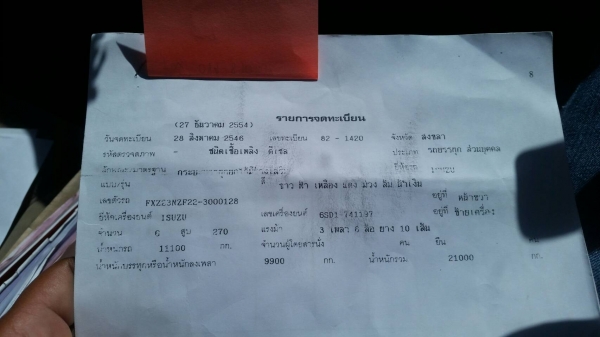 8
(27 ธันวาคม 2554) รายการจดทะเบียน
วันจดทะเบียน 28 สิงหาคม 2546 เลขทะเบียน 82 - 1420 จังหวัด สงขลา
รหัสตรวจสภาพ - ชนิดเชื้อเพลิง ดีเซล ประเภท รถบรรทุก ส่วนบุคคล
ลักษณะ/มาตรฐาน
แบบ/รุ่น สี ขาว ฟ้า เหลือง แดง ม่วง ส้ม น้ำเงิน
เลขตัวรถ FXZ23NZF22-3000128 อยู่ที่ คัสซีขวา
ยี่ห้อเครื่องยนต์ ISUZU เลขเครื่องยนต์ 6SD1 741197 อยู่ที่ ซ้ายเครื่อง
จำนวน 6 สูบ 270 แรงม้า 3 เพลา 6 ล้อ ยาง 10 เส้น
น้ำหนักรถ 11100 กก. จำนวนผู้โดยสารนั่ง คน ยืน คน
น้ำหนักบรรทุกหรือน้ำหนักลงเพลา 9900 กก. น้ำหนักรวม 21000 กก.